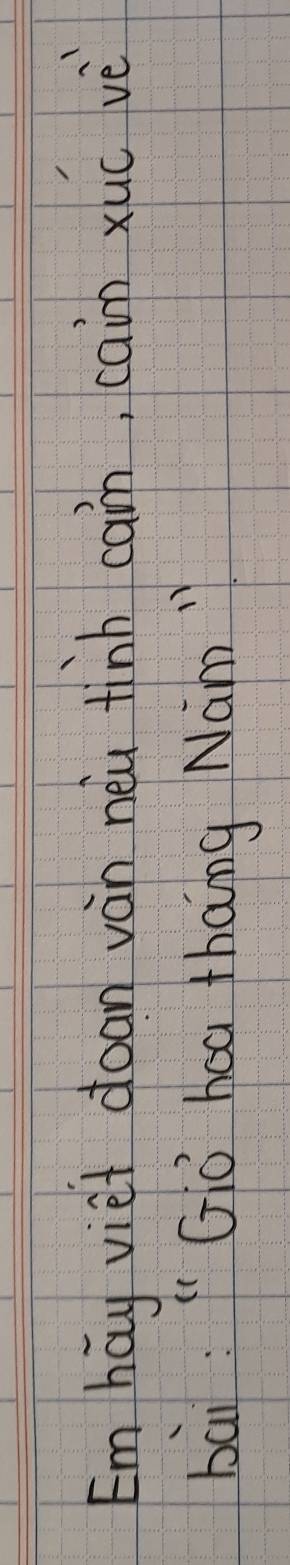 Em hãy viết đoạn văn nêu tình cảm, cảm xúc về
bài: "Giỏ hoa tháng Năm"